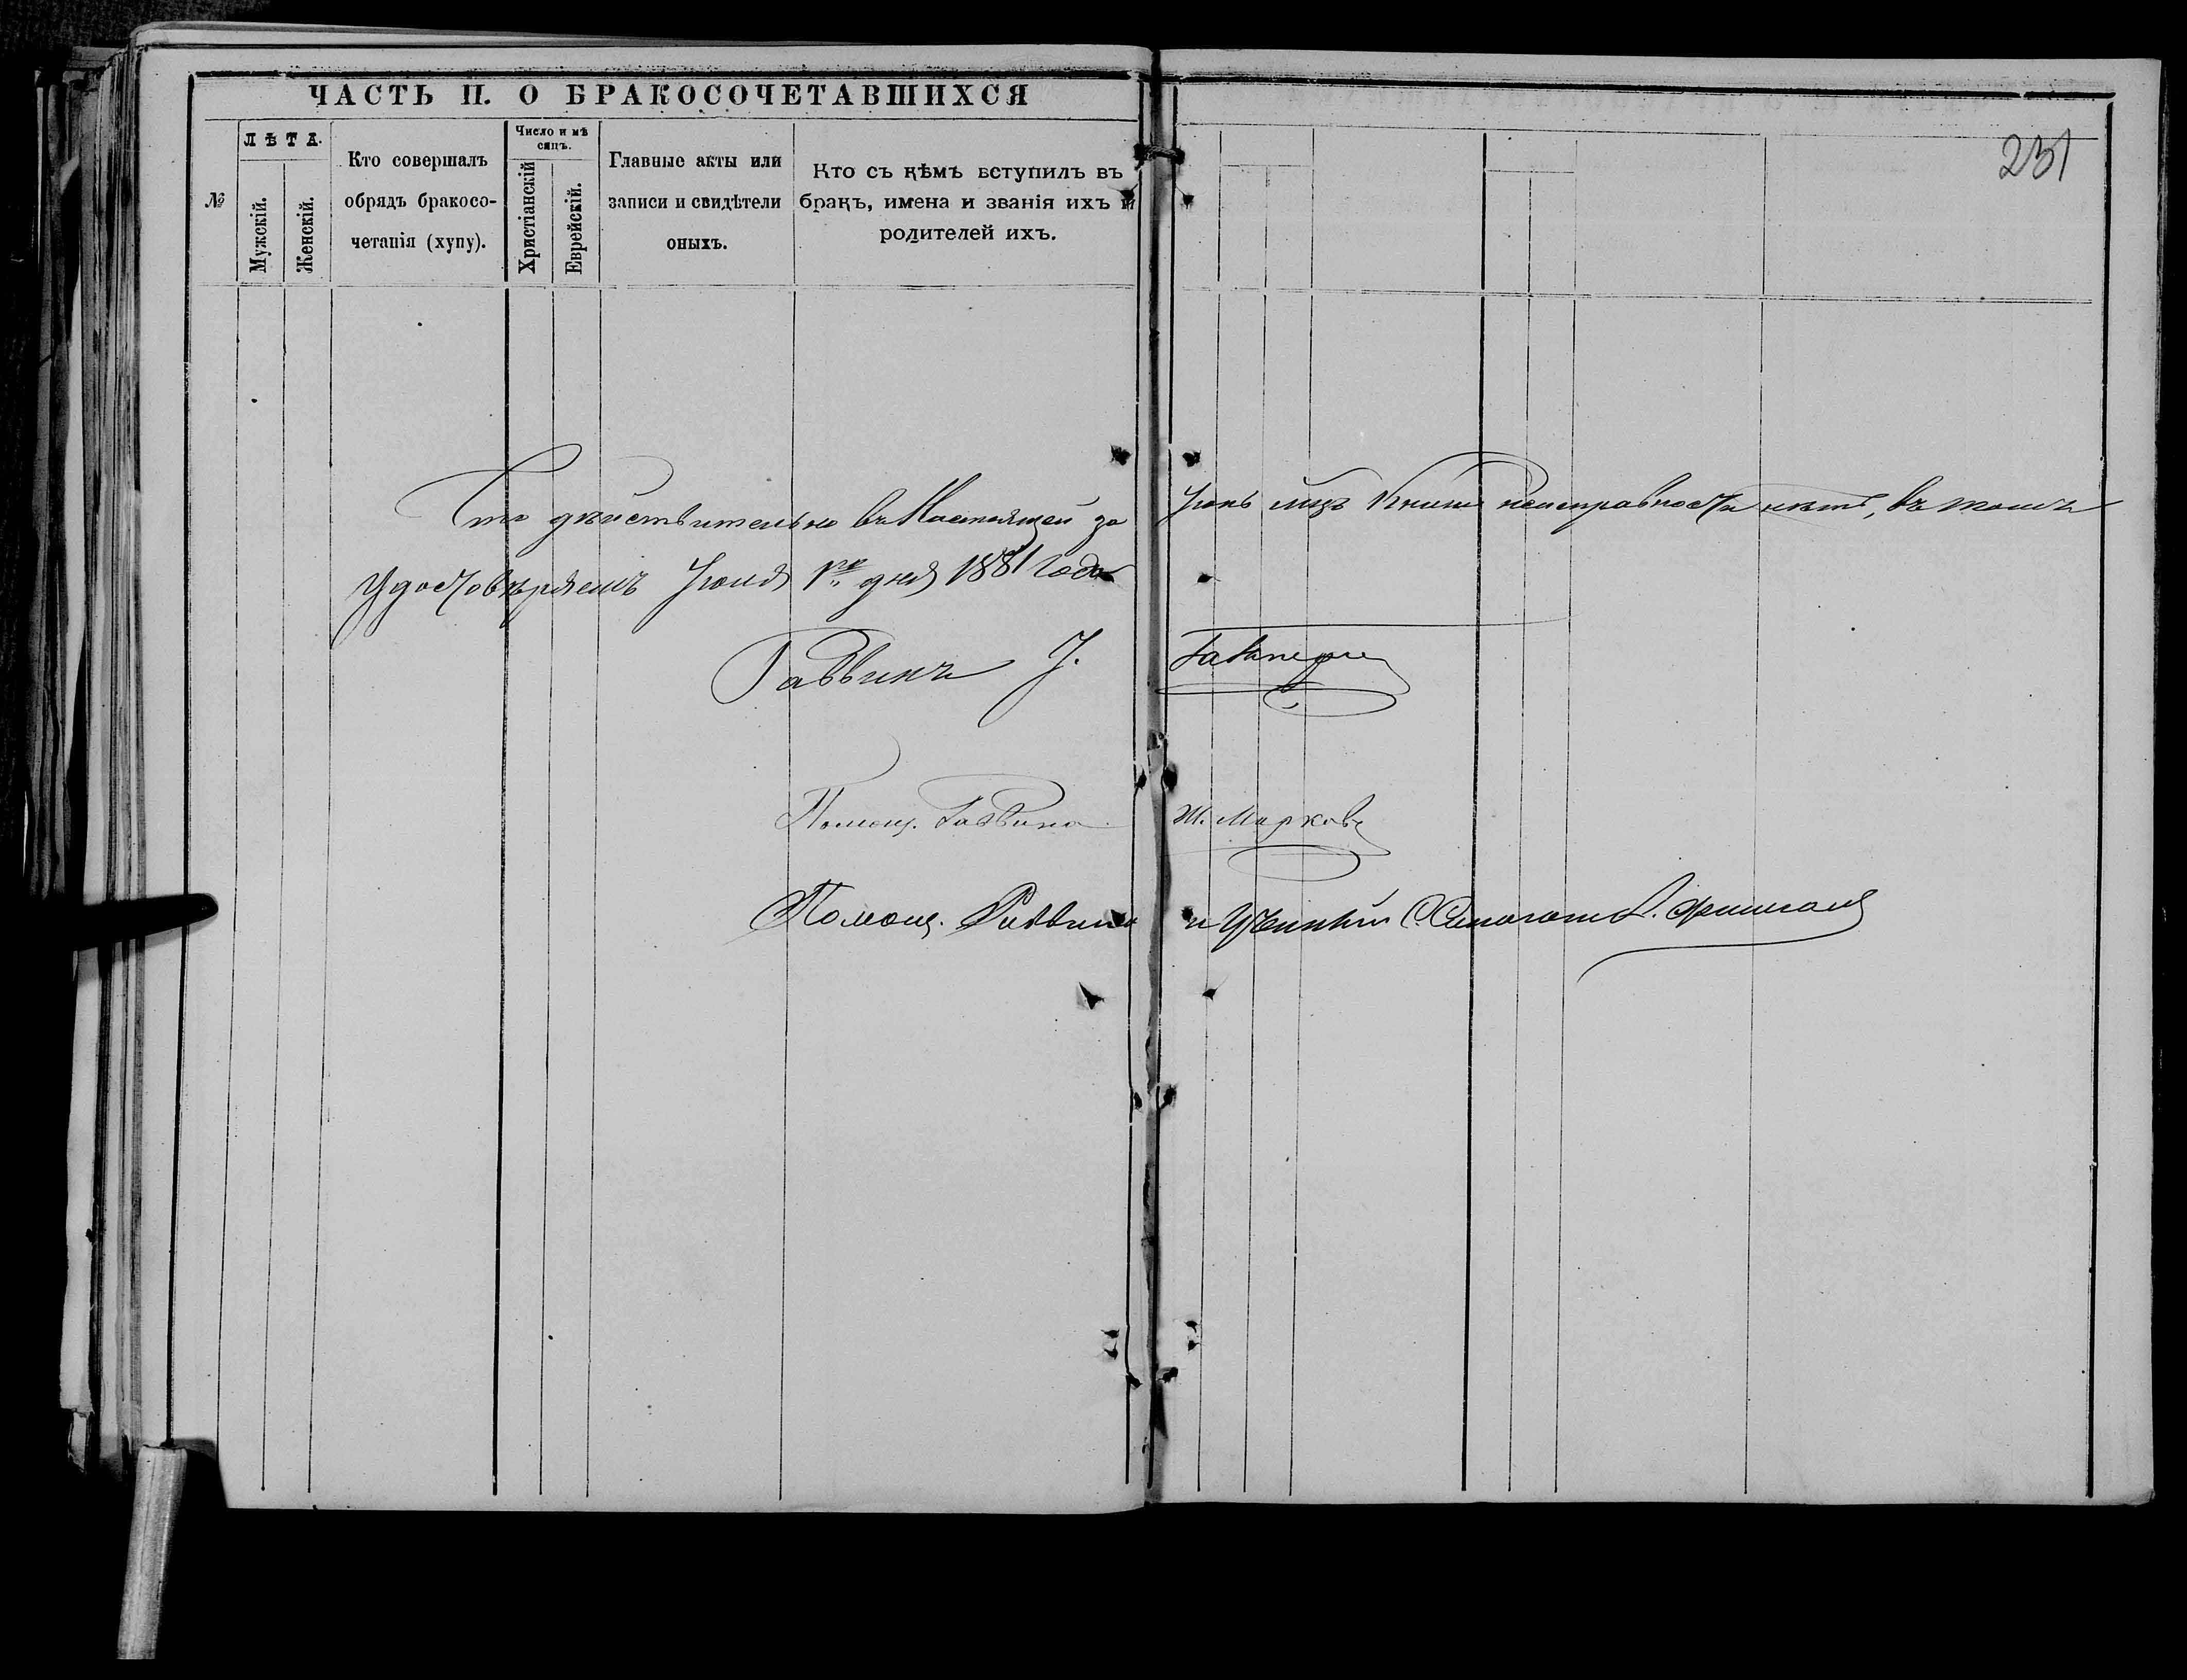 ЧАСТЬ II. О БРАКОСОЧЕТАВШИХСЯ
231
№
ЛѢТА.
Мужскій.
Женскій.
Кто совершалъ обрядъ бракосо-четанія (хупу).
Число и мѣ сяцъ.
Христіанскій
Еврейскій.
Главные акты или записи и свидѣтели оныхъ.
Кто съ кѣмъ вступилъ въ бракъ, имена и званія ихъ и родителей ихъ.
Что дѣйствительно въ Настоящей за Іюнь мцъ Книги неисправности нѣтъ, въ томъ
Удостовѣряемъ Іюля 1го дня 1881 Года
Раввинъ
Помощ. Раввина Ж. Марковъ
Помощ. Раввина и